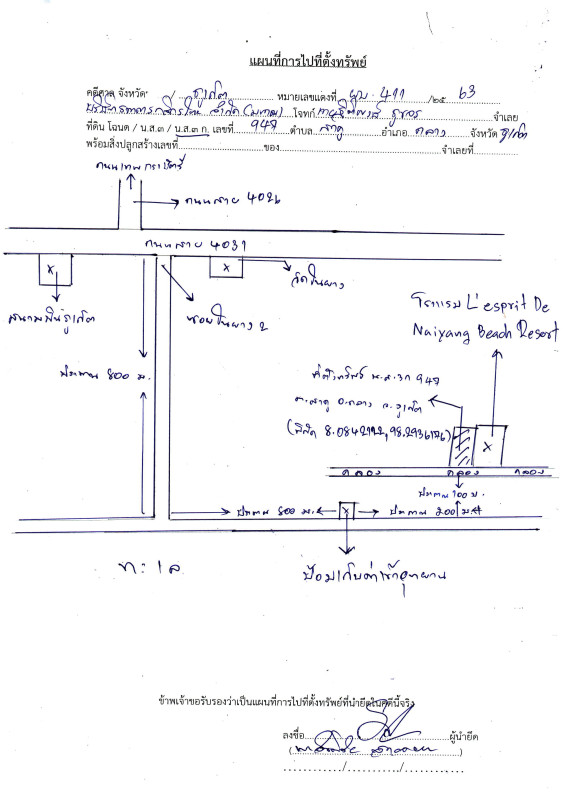 แผนที่การไปที่ตั้งทรัพย์
คดีศาล จังหวัด ภูเก็ต หมายเลขแดงที่ ผบ. 411 /๒๕ 63
บริษัทธนาคารกสิกรไทย จำกัด (มหาชน) โจทก์ จำเลย
ที่ดิน โฉนด / น.ส.๓ / น.ส.๓ ก. เลขที่ 947 ตำบล สาคู อำเภอ ถลาง จังหวัด ภูเก็ต
พร้อมสิ่งปลูกสร้างเลขที่ ของ จำเลยที่
ถนนเทพกระษัตรี
ถนนสาย 4026
ถนนสาย 4031
x
x
สนามบินภูเก็ต
ซอยในยาง 2
วัดในยาง
โรงแรม L'esprit De
Naiyang Beach Resort
ประมาณ 800 ม.
ที่ตั้งทรัพย์ น.ส.3ก 947
ต.สาคู อ.ถลาง จ.ภูเก็ต
x
คลอง คลอง คลอง
ประมาณ 100 ม.
ประมาณ 800 ม. x ประมาณ 200 ม.
ทะเล
ป้อมเก็บค่าเข้าอุทยาน
ข้าพเจ้าขอรับรองว่าเป็นแผนที่การไปที่ตั้งทรัพย์ที่นำยึดในคดีนี้จริง
ลงชื่อ ผู้นำยึด